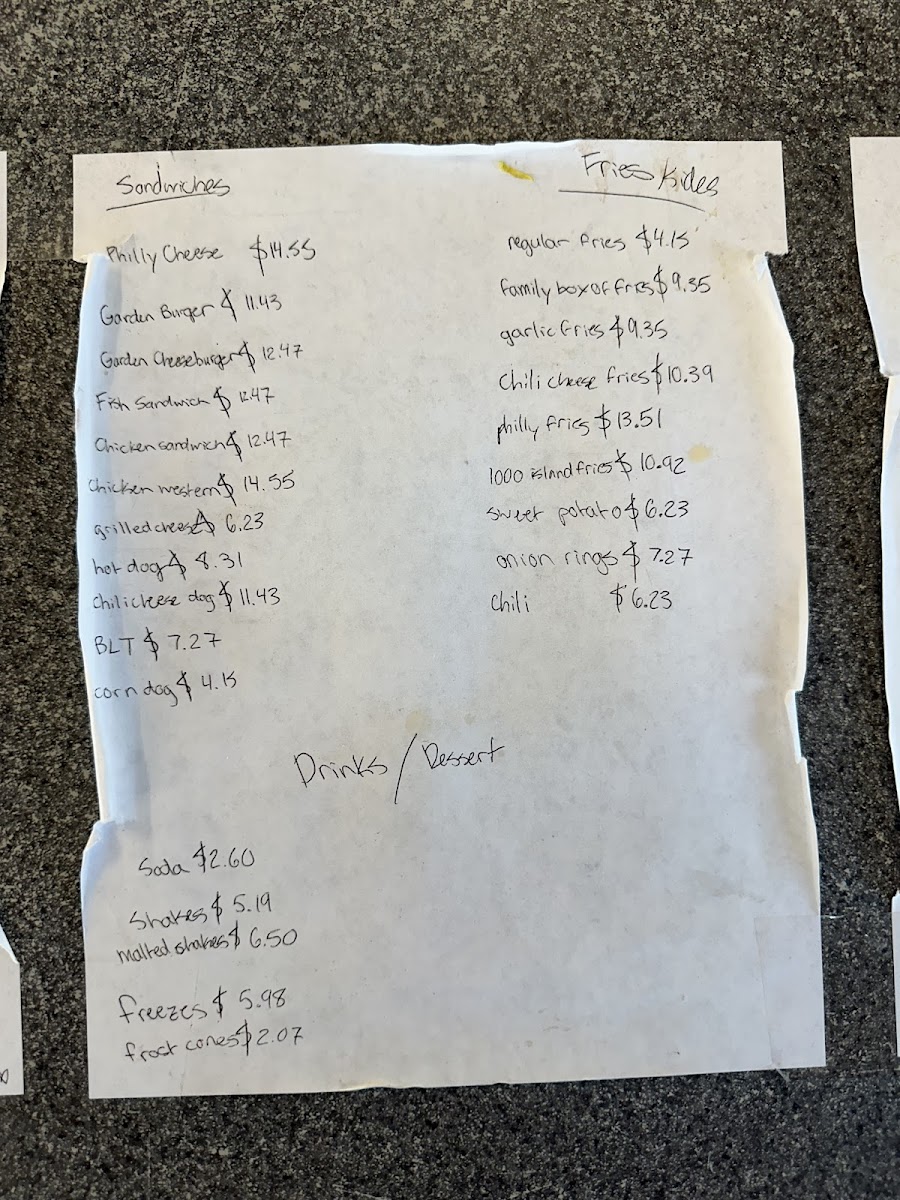 Sandwiches
Philly Cheese $14.55
Garden Burger $ 11.43
Garden Cheeseburger $ 12.47
Fish Sandwich $ 12.47
Chicken sandwich $ 12.47
Chicken western $ 14.55
grilled cheese $ 6.23
hot dog $ 8.31
chili cheese dog $ 11.43
BLT $ 7.27
corn dog $ 4.15
Fries /sides
regular fries $4.15
family box of fries $ 9.35
garlic fries $9.35
Chili cheese fries $10.39
philly fries $13.51
1000 island fries $ 10.92
sweet potato $ 6.23
onion rings $ 7.27
Chili $ 6.23
Drinks / Dessert
Soda $2.60
Shakes $ 5.19
malted shakes $ 6.50
freezes $ 5.98
frost cones $2.07